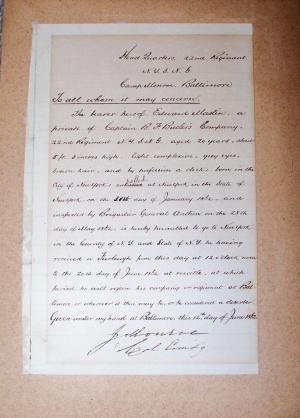 Head Quarters, 22nd Regiment
N.Y.S.N.G
Camp Monroe, Baltimore
To all whom it may concern.
The bearer hereof Edward Martin, a
private of Captain R. F. Butler's Company,
22nd Regiment N.Y.S.N.G. aged 20 years, about
5 ft. 8 inches high. light complexion, grey eyes,
brown hair, and by profession a clerk; born in the
City of New York; enlisted at New York, in the State of
New York, on the day of January 1862, and
inspected by Brigadier General on the 28th
day of May 1862, is hereby permitted to go to New York
in the County of N.Y. and State of N.Y. he having
received a Furlough from this day at 12 o'clock noon
to the 20th day of June 1862 at reveille, at which
period he will rejoin his company or regiment at Balt-
imore or wherever it then may be, or be considered a deserter.
Given under my hand at Baltimore, this day of June 1862
J Monroe
Col Comdg